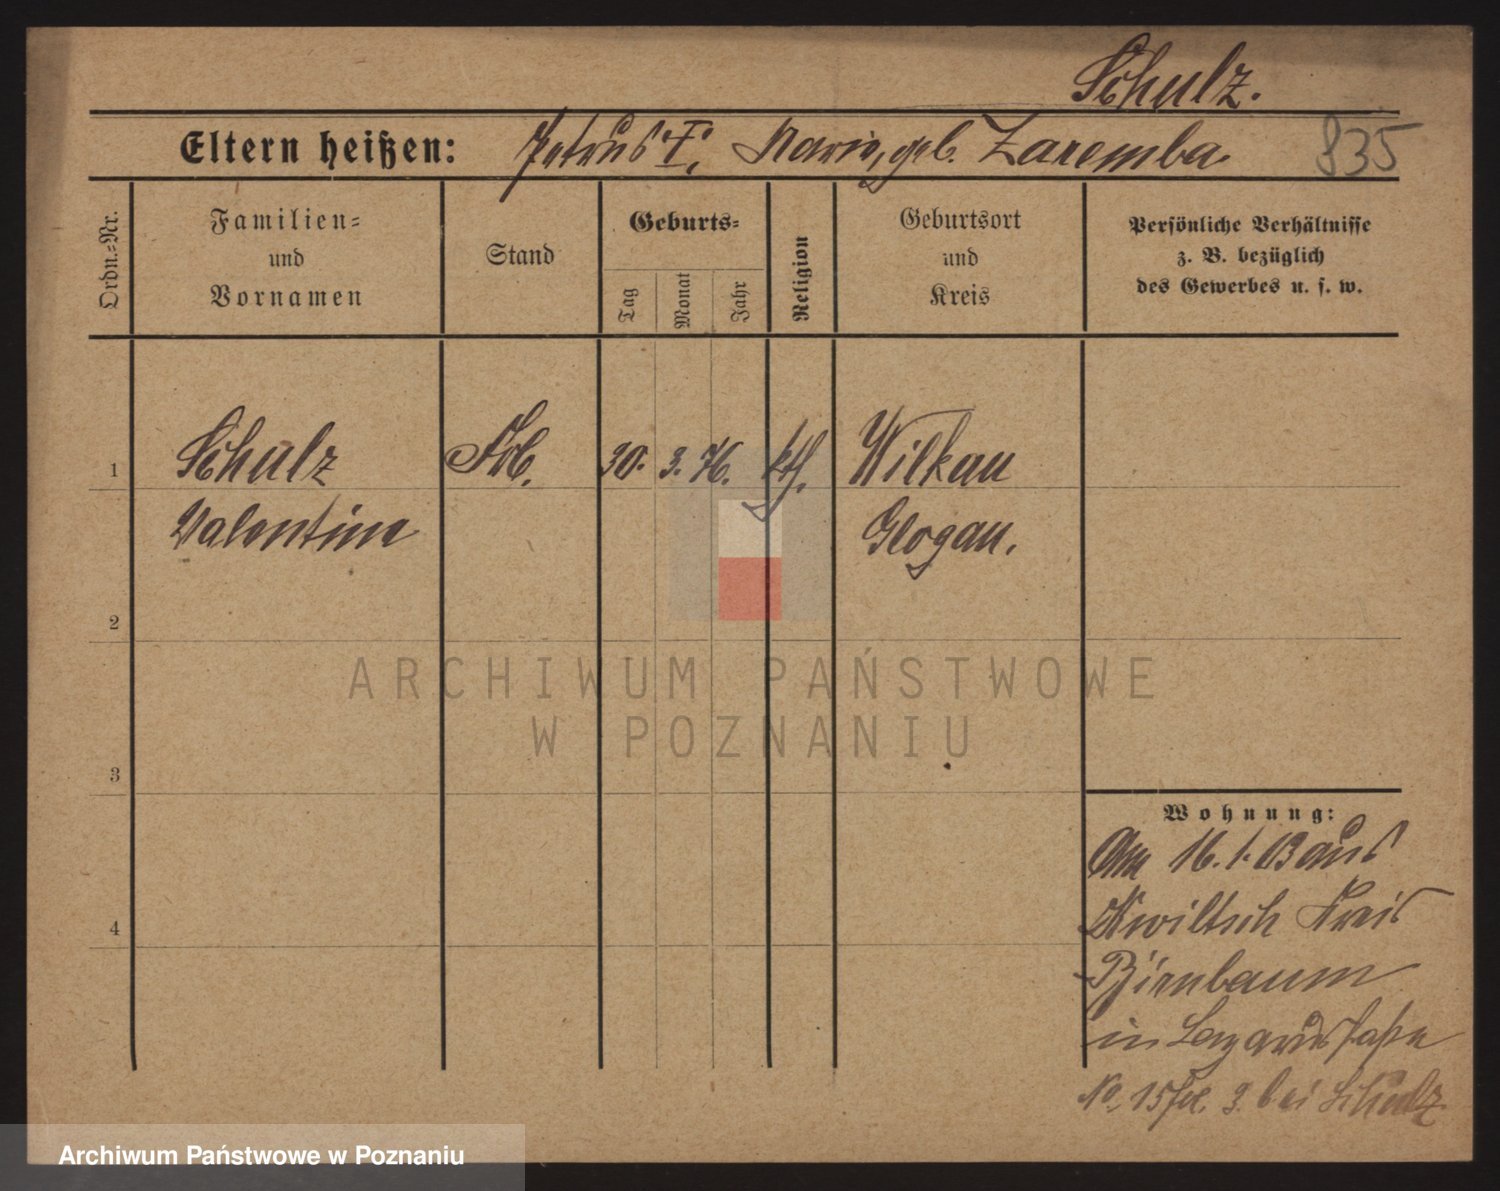 Schulz.
Eltern heißen: Petrus I. Maria, geb. Zaremba 835
Ordn.-Nr.
Familien-
und
Vornamen
Stand
Geburts-
Tag
Monat
Jahr
Religion
Geburtsort
und
Kreis
Persönliche Verhältnisse
z. B. bezüglich
des Gewerbes u. s. w.
1 Schulz Arb. 30. 3. 76. kth. Wilkau
Valentine Glogau.
2
ARCHIWUM PAŃSTWOWE
W POZNANIU
3
Wohnung:
Am 16. 1. 03 aus
Kwiltsch Kreis
Birnbaum
4
in Lazarusstraße
No. 15 3. bei Schulz
Archiwum Państwowe w Poznaniu